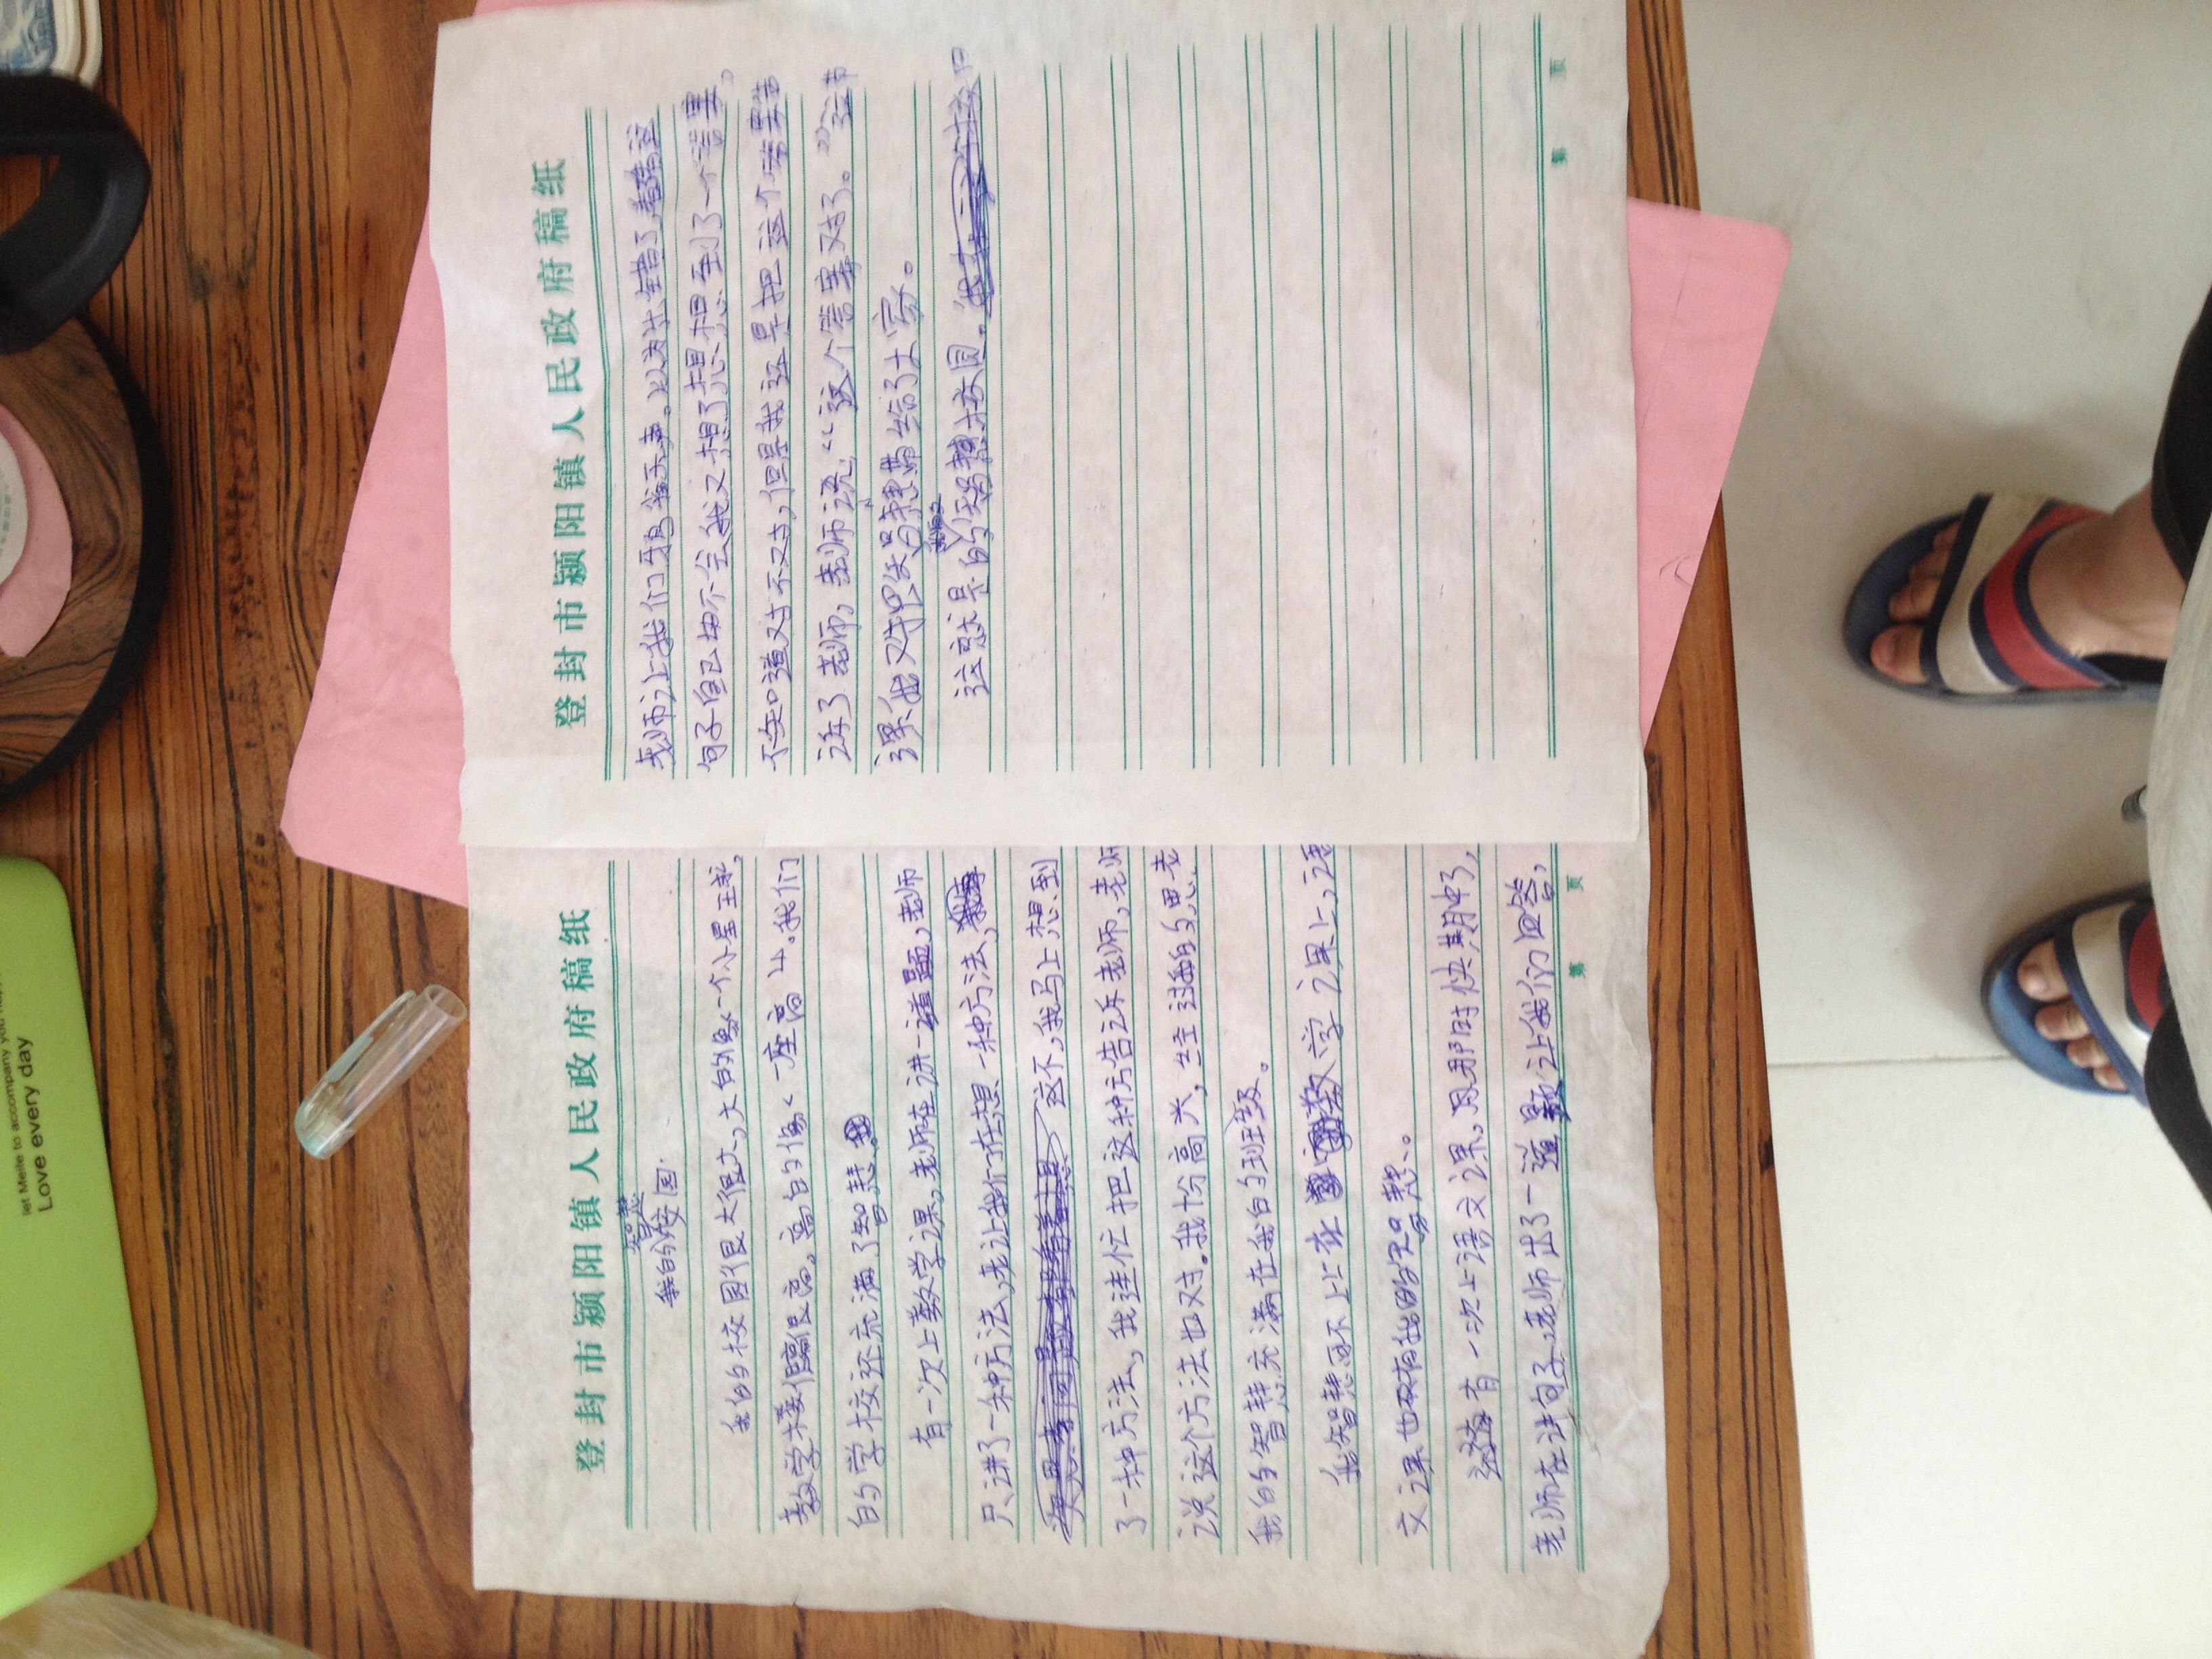 登封市颍阳镇人民政府稿纸
智慧
我的校园
我的校园很大很大,大的象一个小星球,
教学楼很高,高的像一座高山。我们
的学校还充满了智慧。
有一次上数学课,老师在讲一道题,老师
只讲了一种方法,老让我们在想一种方法,
这不,我马上想到
了一种方法,我连忙把这种方告诉老师,老师
说这个方法也对。我十份高兴,经过的思考
我的智慧充满在我的班级。
我智慧不上在数学课上,语
文课也有我的智慧。
有一次上语文课,那时快期中了,
老师在讲句子,老师出了一道题让我们回答,
第 页
登封市颍阳镇人民政府稿纸
老师让我们
句子自己也不会我又想了想想到了一个答案,
不知道对不对,但是我还是把这个答案告
诉了老师,老师说,“这个答案对了。”这节
课我又把智慧带给了大家。
这就是我的智慧校园。
第 页
let Meite to accompany you
Love every day